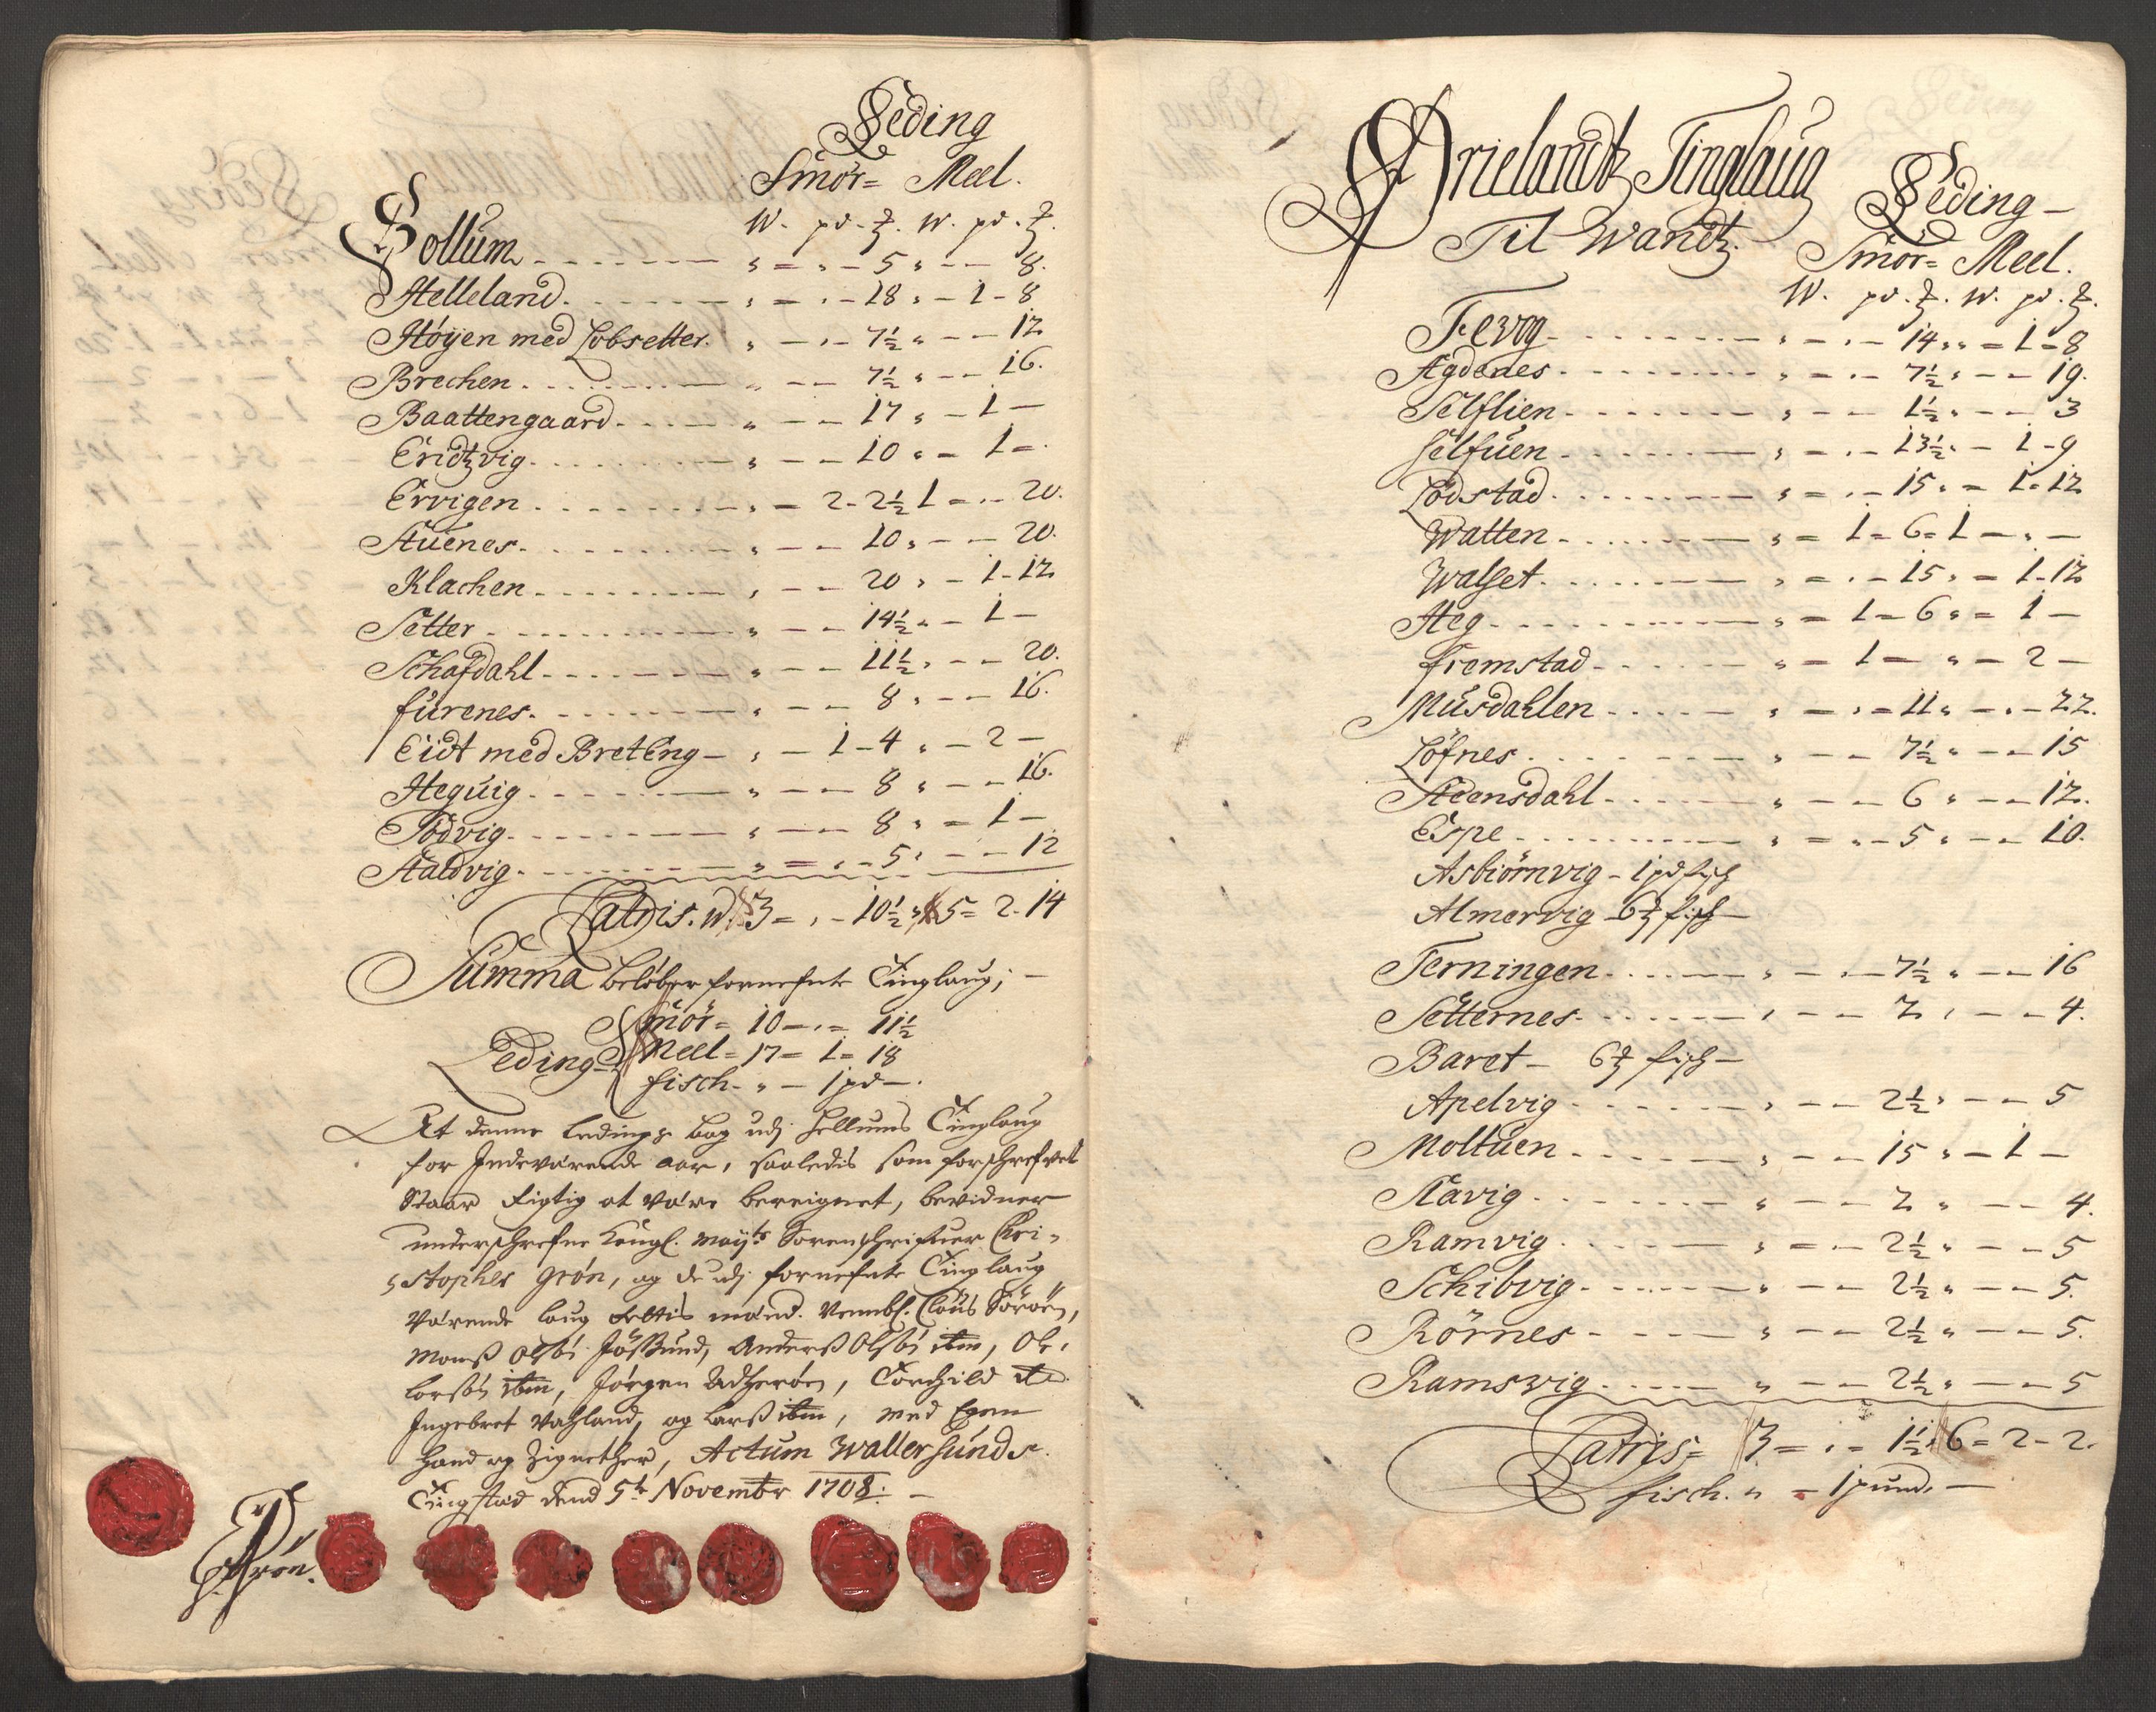 Leding
Smör= Meel.
W. pd. ℔. W. pd. ℔.
Hollum - - - - - „ = „ - 5 „ - - 8.
Helleland. - - - - - „ = „ - 18 „ - 1 - 8
Høyen med Lobsetter. „ - „ - 7½ „ - - 12
Brechen. - - - - - „ - - 7½ „ - - 16.
Baattengaard - - - - - „ - - 17 „ - 1 -
Eridtzvig. - - - - - „ - - 10 „ - 1 =
Ervigen - - - - - „ = 2 - 2½ 1 = „ - 20.
Stuenes. - - - - - „ - - 10 „ - - 20.
Klachen - - - - - „ - - 20 „ - 1 - 12
Setter - - - - - „ - - 14½ „ - 1 -
Schafdahl - - - - - „ - - 11½ „ - - 20.
furenes. - - - - - „ - - 8 „ - - 16.
Eidt med BretEng - „ - 1 - 4 „ - 2 -
Heguig - - - - - „ - - 8 „ - - 16.
Todvig - - - - - „ - - 8 „ = 1 -
Staldvig - - - - - „ = „ - 5 „ - - 12
Latris. W. 3 = „ - 10½ „ 5 = 2 - 14
Summa beløber fornefnte Tinglaug; -
Smör = 10 - „ = 11½
Leding= Meel = 17 = 1 = 18
fisch - „ - 1 pd -.
At denne Ledings bog udj Hollums Tinglaug
for Indeværende aar, saaledis som forschrefvet
Staar Rigtig at være beregnet, bevidner
underschrefne Kongl. Mayts Sorenschrifuer Chri-
stopher Grøn, og de udj fornefnte Tinglaug
værende laug Rettis mænd. Nembl. Clous Sörören,
Monß Olßön Jößund, Anderß Olßön ibm, Ole
Larßön ibm, Jörgen Udherøen, Torchild ibm
Ingebret Vahland, og Larß ibm, med Egen
Hand og Zignether, Actum Wallersunds
Tingstad dend 5te Novembr 1708: -
Grön.
Ørielandtz Tinglaug
Til Wandtz
Leding -
Smör= Meel.
W. pd. ℔. W. pd. ℔.
Fevog - - - - - „ = „ - 14 „ „ = 1 = 8
Agdenes - - - - - „ = „ - 7½ „ - - 19.
Selflien - - - - - „ - - 1½ „ - - 3
Selfuen - - - - - „ = „ - 13½ „ - 1 - 9
Lodstad - - - - - „ = „ - 15 „ = 1 - 12
Watten - - - - - „ = 1 = 6 = 1 = „ -
Walset. - - - - - „ = „ - 15 „ = 1 - 12
Heg - - - - - „ = 1 = 6 „ = 1 -
fremstad - - - - - „ = 1 = „ = 2 -
Musdahlen - - - - - „ = „ = 11 „ - „ - 22.
Löfnes - - - - - „ - - 7½ „ - - 15
Stdensdahl - - - - - „ - - 6 „ - - 12.
Espe - - - - - „ = „ - 5 „ - - 10.
Asbiörnvig - 1 pd fisch
Almervig - 6 ℔ fisch -
Terningen - - - - - „ - „ - 7½ „ - - 16
Setternes - - - - - „ - - 2 „ - - 4.
Baret - 6 ℔ fisch -
Apelvig - - - - - „ - - 2½ „ - - 5
Moltuen - - - - - „ - - 15 „ - 1 -
Stavig - - - - - „ - - 2 „ - - 4.
Ramvig - - - - - „ = - 2½ „ - - 5
Schibvig - - - - - „ - - 2½ „ - - 5.
Rörnes - - - - - „ - - 2½ „ - - 5.
Ramsvig - - - - - „ - - 2½ „ - - 5
Latris = 3 = „ = 1½ „ 6 = 2 - 2.
fisch. „ = 1 pund. -